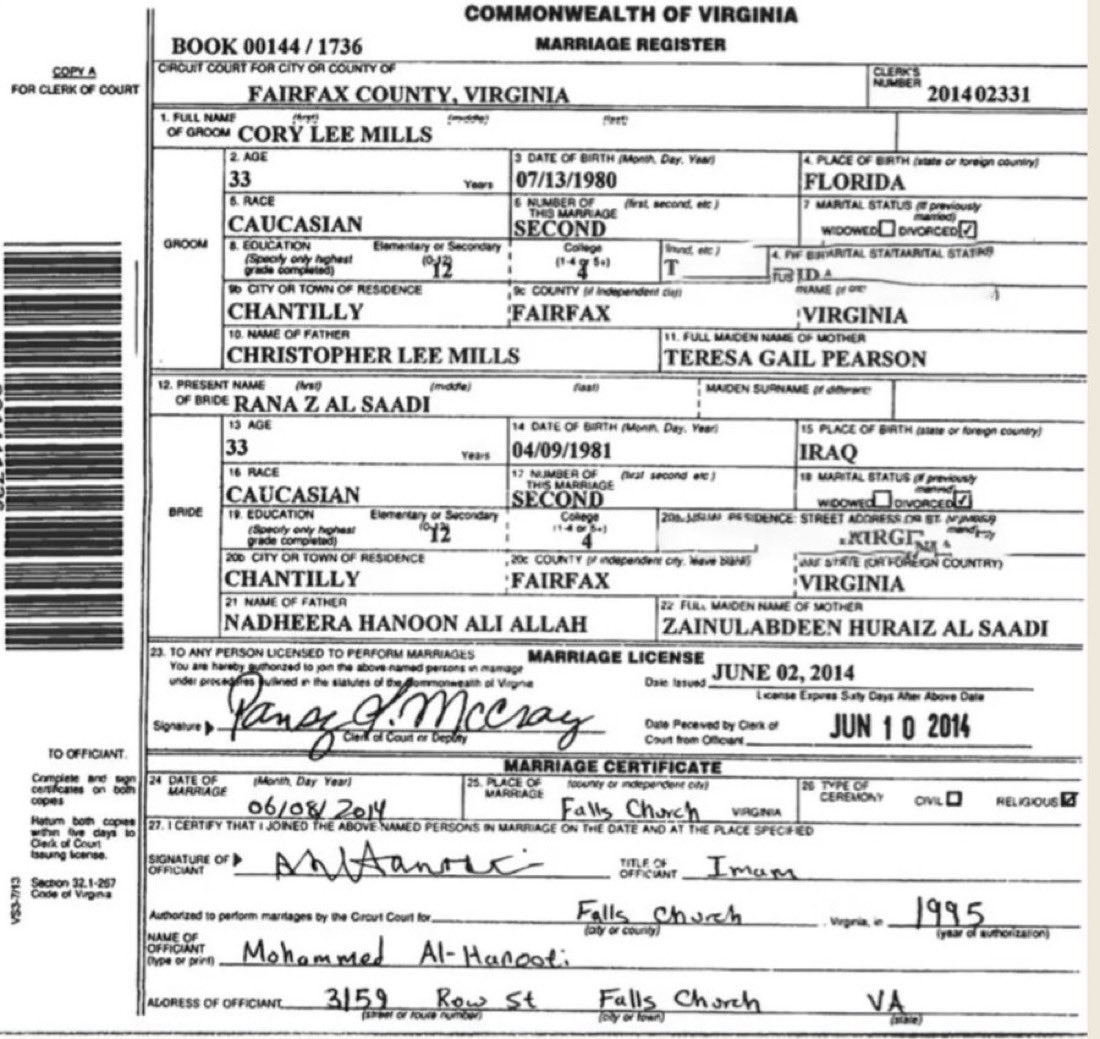 COMMONWEALTH OF VIRGINIA
BOOK 00144 / 1736 MARRIAGE REGISTER
COPY A
FOR CLERK OF COURT
CIRCUIT COURT FOR CITY OR COUNTY OF
FAIRFAX COUNTY, VIRGINIA
CLERK'S NUMBER 201402331
1. FULL NAME OF GROOM (first) (middle) (last)
CORY LEE MILLS
GROOM
2. AGE 33 Years
3 DATE OF BIRTH (Month, Day, Year) 07/13/1980
4. PLACE OF BIRTH (state or foreign country) FLORIDA
5. RACE CAUCASIAN
6 NUMBER OF THIS MARRIAGE (first, second, etc) SECOND
7 MARITAL STATUS (if previously married) WIDOWED ☐ DIVORCED ☑
8. EDUCATION (Specify only highest grade completed) Elementary or Secondary (0-12) 12 College (1-4 or 5+) 4
9b CITY OR TOWN OF RESIDENCE CHANTILLY
9c COUNTY (if independent city) FAIRFAX
VIRGINIA
10. NAME OF FATHER CHRISTOPHER LEE MILLS
11. FULL MAIDEN NAME OF MOTHER TERESA GAIL PEARSON
12. PRESENT NAME OF BRIDE (first) (middle) (last) MAIDEN SURNAME (if different)
RANA Z AL SAADI
BRIDE
13 AGE 33 Years
14 DATE OF BIRTH (Month, Day, Year) 04/09/1981
15 PLACE OF BIRTH (state or foreign country) IRAQ
16 RACE CAUCASIAN
17 NUMBER OF THIS MARRIAGE (first second etc) SECOND
18 MARITAL STATUS (if previously married) WIDOWED ☐ DIVORCED ☑
19. EDUCATION (Specify only highest grade completed) Elementary or Secondary (0-12) 12 College (1-4 or 5+) 4
20b CITY OR TOWN OF RESIDENCE CHANTILLY
20c COUNTY (if independent city, leave blank) FAIRFAX
STATE (OR FOREIGN COUNTRY) VIRGINIA
21 NAME OF FATHER NADHEERA HANOON ALI ALLAH
22 FULL MAIDEN NAME OF MOTHER ZAINULABDEEN HURAIZ AL SAADI
23. TO ANY PERSON LICENSED TO PERFORM MARRIAGES MARRIAGE LICENSE
You are hereby authorized to join the above-named persons in marriage
under procedures outlined in the statutes of the Commonwealth of Virginia
Date Issued JUNE 02, 2014
License Expires Sixty Days After Above Date
Signature Pansy J. McCray
Clerk of Court or Deputy
Date Received by Clerk of Court from Officiant JUN 10 2014
MARRIAGE CERTIFICATE
TO OFFICIANT.
Complete and sign certificates on both copies
Return both copies within five days to Clerk of Court issuing license.
Section 32.1-267 Code of Virginia
VS3-7/13
24 DATE OF MARRIAGE (Month, Day Year) 06/08/2014
25. PLACE OF MARRIAGE (county or independent city) Falls Church VIRGINIA
26 TYPE OF CEREMONY CIVIL ☐ RELIGIOUS ☑
27. I CERTIFY THAT I JOINED THE ABOVE NAMED PERSONS IN MARRIAGE ON THE DATE AND AT THE PLACE SPECIFIED
SIGNATURE OF OFFICIANT
TITLE OF OFFICIANT Imam
Authorized to perform marriages by the Circuit Court for Falls Church (city or county) Virginia, in 1995 (year of authorization)
NAME OF OFFICIANT (type or print) Mohammed Al-Hanooti
ADDRESS OF OFFICIANT 3159 Row St Falls Church VA
(street or route number) (city or town) (state)